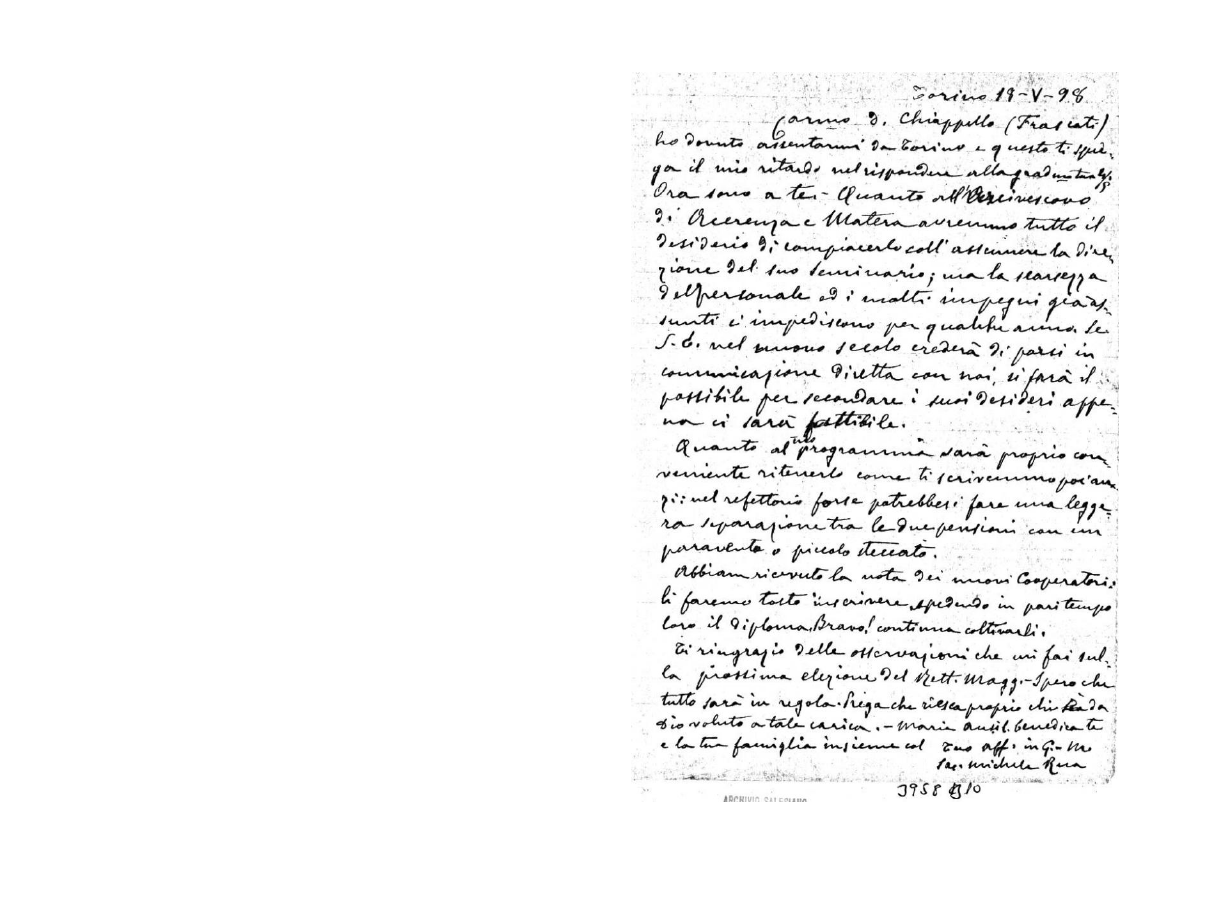 Torino 19-V-98
Carmo D. Chiappello (Frascati)
ho dovuto assentarmi da Torino e questo ti spie-
ga il mio ritardo nel rispondere alla grad
Ora sono a te:- Quanto all'Arcivescovo
di Acerenza e Matera avremmo tutto il
desiderio di compiacerlo coll'assumere la dire-
zione del suo seminario; ma la scarsezza
del personale ed i molti impegni già as-
sunti ci impediscono per qualche anno. Se
S. E. nel nuovo secolo crederà di porsi in
comunicazione diretta con noi, si farà il
possibile per secondare i suoi desideri appe-
na ci sarà fattibile.
Quanto al programma sarà proprio con-
veniente ritenerlo come ti scrivemmo poc'an-
zi: nel refettorio forse potrebbesi fare una legge-
ra separazione tra le due pensioni con un
paravento o piccolo steccato.
Abbiam ricevuto la nota dei nuovi Cooperatori:
li faremo tosto inscrivere, spedendo in pari tempo
loro il diploma. Bravo! continua coltivarli.
Ti ringrazio delle osservazioni che mi fai sul-
la prossima elezione del Rett. Magg.- Spero che
tutto sarà in regola. Prega che riesca proprio chi sia da
Dio voluto a tale carica.- Maria Ausil. benedica te
e la tua famiglia insieme col Tuo aff. in G. M.
Sac. Michele Rua
3958 B10
ARCHIVIO SALESIANO